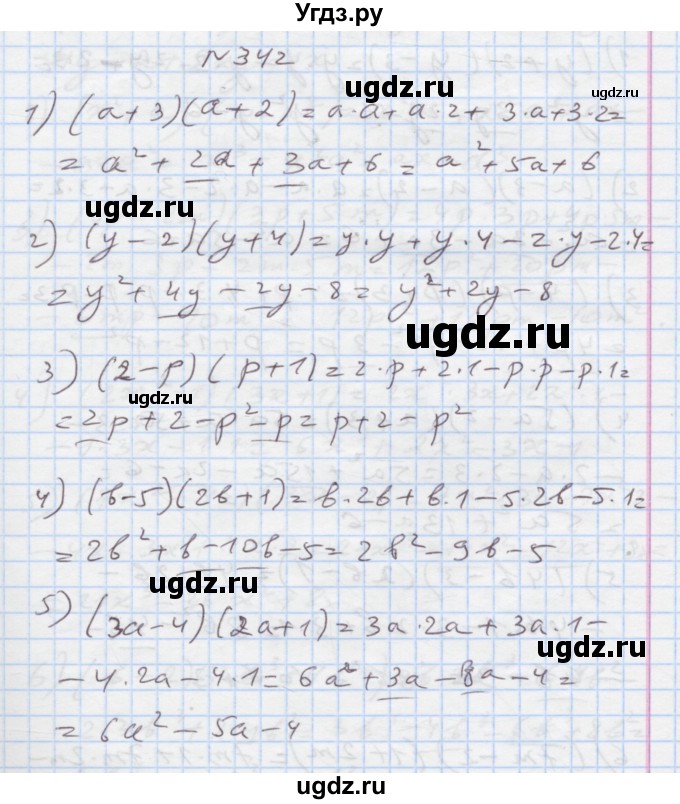 Угдз.ру
N 342
ugdz.ru
1) (a+3)(a+2)=a·a+a·2+3·a+3·2=
=a²+2a+3a+6=a²+5a+6
ugdz.ru
2) (y-2)(y+4)=y·y+y·4-2·y-2·4=
=y²+4y-2y-8=y²+2y-8
ugdz.ru
3) (2-p)(p+1)=2·p+2·1-p·p-p·1=
=2p+2-p²-p=p+2-p²
4) (b-5)(2b+1)=b·2b+b·1-5·2b-5·1=
=2b²+b-10b-5=2b²-9b-5
ugdz.ru
5) (3a-4)(2a+1)=3a·2a+3a·1-
-4·2a-4·1=6a²+3a-8a-4=
=6a²-5a-4
ugdz.ru